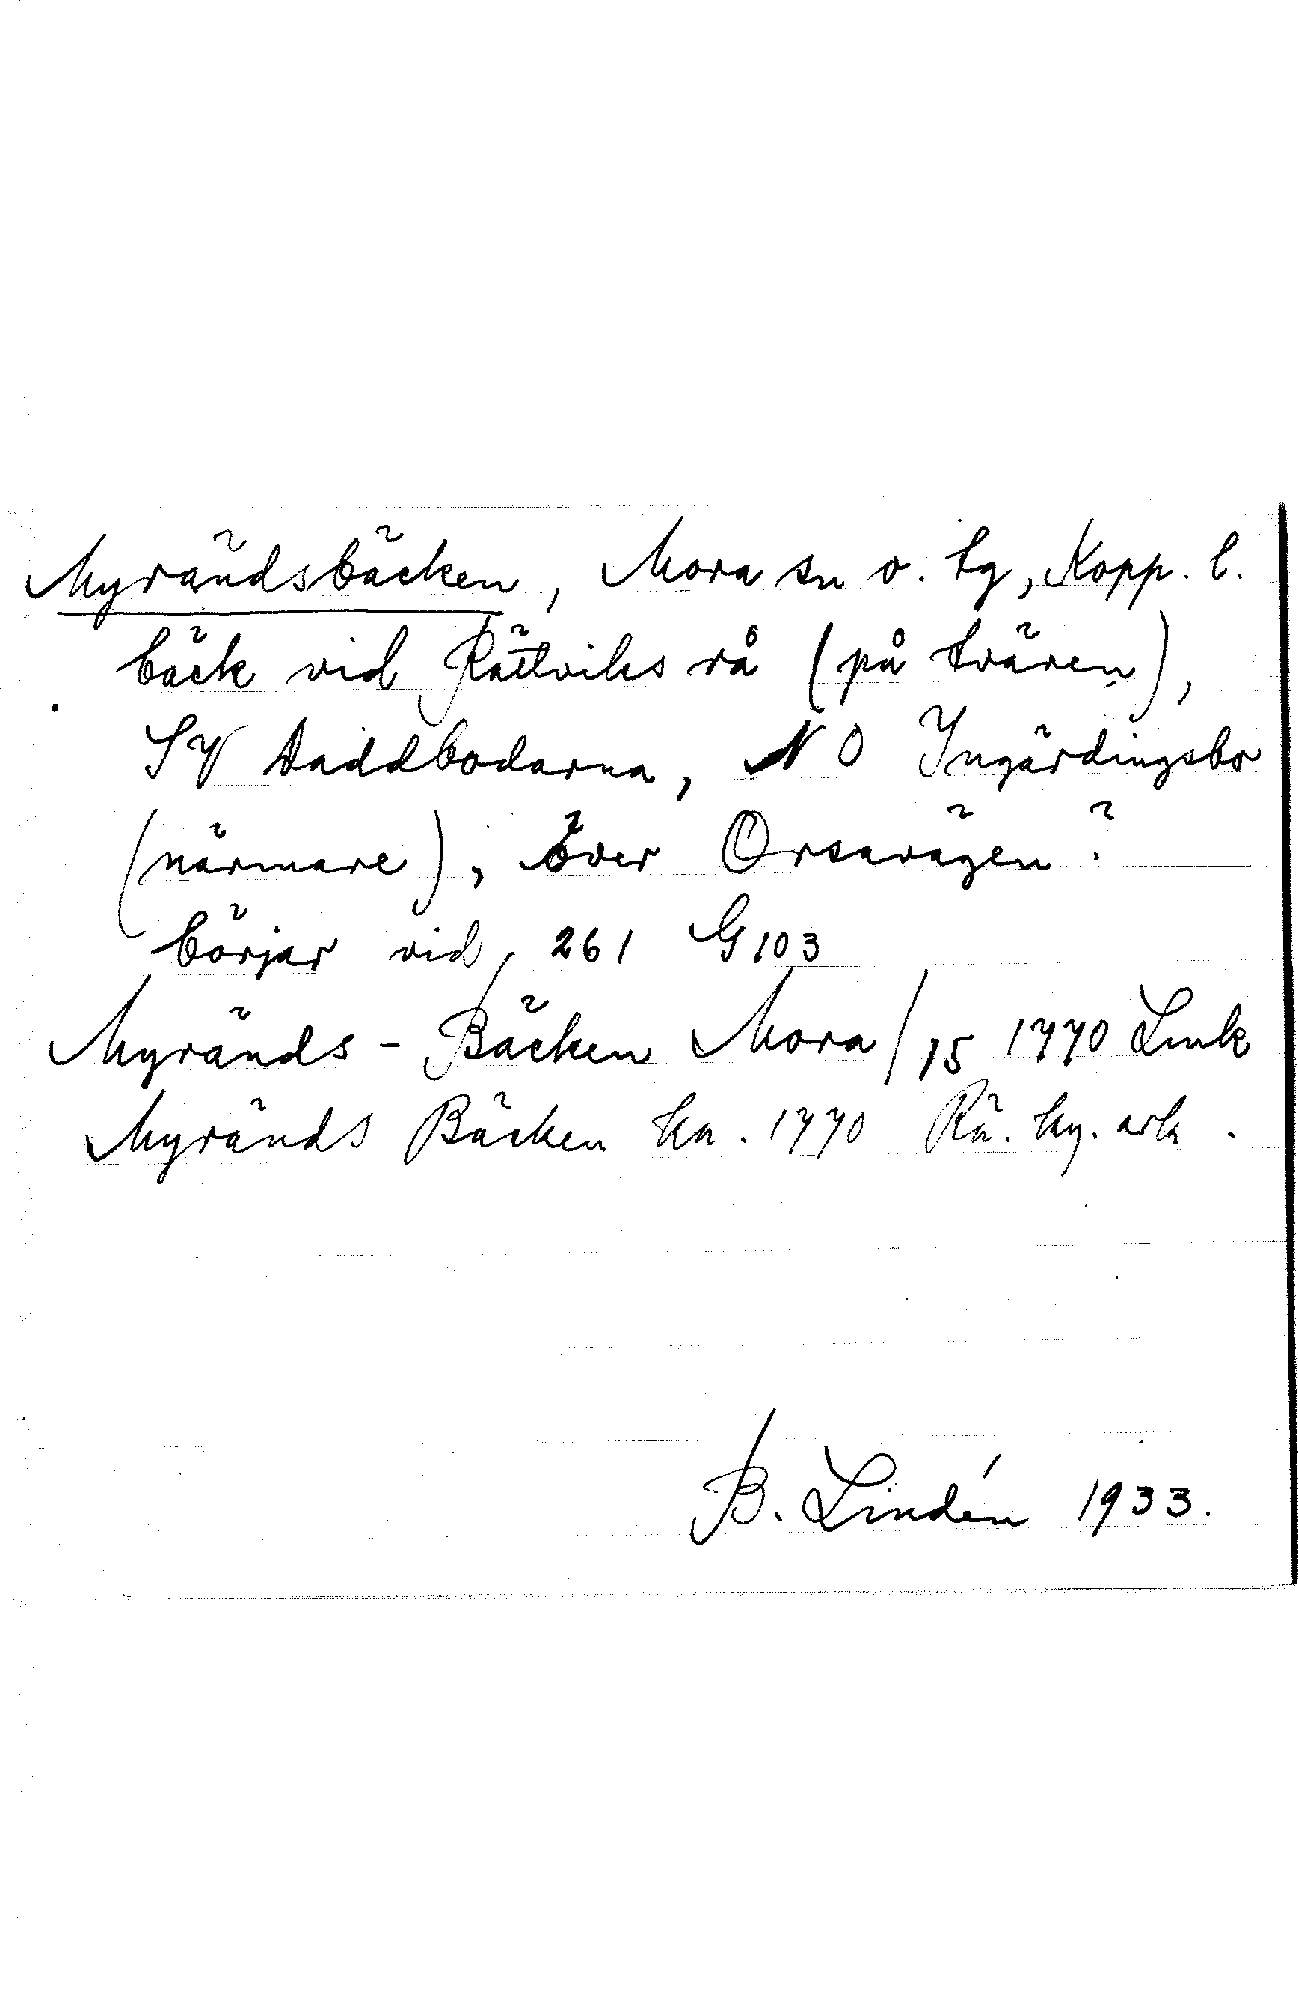 Myrändsbäcken, Mora sn o. tg, Kopp. l.
bäck vid Rättviks rå (på tvären),
SV Daddbodarna, NO Ingärdingsbo
(närmare), över Orsavägen?
börjar vid 261 G103
Myränds - Bäcken Mora/15 1770 Lmk
Myränds Bäcken ka. 1770 Rä. ky. ark.
B. Lindén 1933.